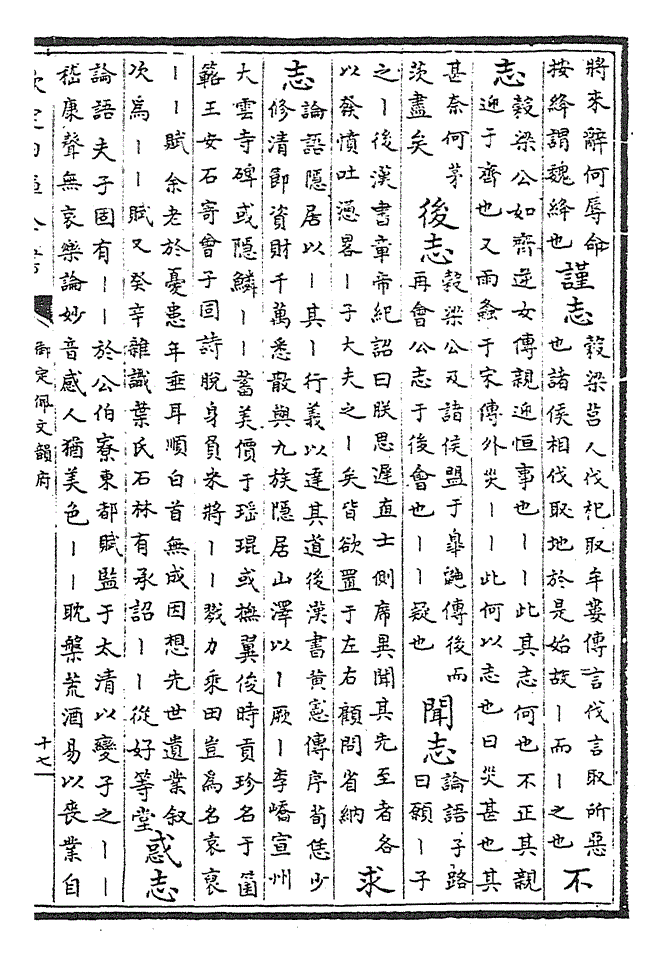 將來辭何辱命
按絳謂魏絳也
謹志
榖梁莒人伐杞取牟婁傳言伐言取所惡
也諸侯相伐取地於是始故丨而丨之也
不
志
榖梁公如齊逆女傳親迎恒事也丨丨此其志何也不正其親
迎于齊也又雨螽于宋傳外災丨丨此何以志也曰災甚也其
甚奈何茅
茨盡矣
後志
榖梁公及諸侯盟于臯鼬傳後而
再會公志于後會也丨丨疑也
聞志
論語子路
曰願丨子
之丨後漢書章帝紀詔曰朕思遲直士側席異聞其先至者各
以發憤吐懣畧丨子大夫之丨矣皆欲置于左右顧問省納
求
志
論語隱居以丨其丨行義以達其道後漢書黄憲傳序荀恁少
修清節資財千萬悉散與九族隱居山澤以丨厥丨李嶠宣州
大雲寺碑或隱鱗丨丨蓄美價于瑶琨或撫翼俊時貢珍名于箘
簵王安石寄曾子固詩脱身負米將丨丨戮力乘田豈為名袁裒
丨丨賦余老於憂患年垂耳順白首無成因想先世遺業叙
次為丨丨賦又癸辛雜識葉氏石林有承詔丨丨從好等堂
惑志
論語夫子固有丨丨於公伯寮東都賦監于太清以變子之丨丨
嵇康聲無哀樂論妙音感人猶美色丨丨耽槃荒酒易以喪業自
欽定四庫全書
御定佩文韻府
十七